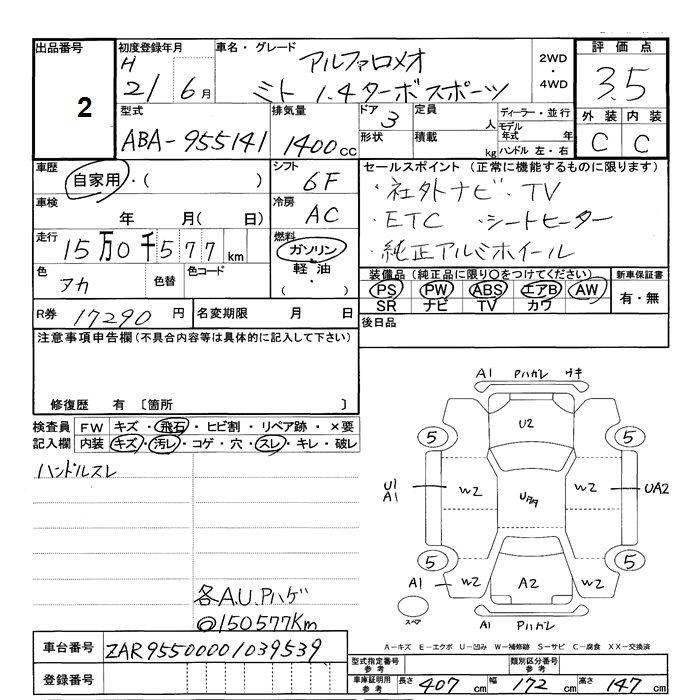 出品番号 2
初度登録年月 H 21 6月
車名・グレード アルファロメオ
ミト 1.4ターボスポーツ
2WD・4WD
評価点 3.5
外装 内装
C C
型式 ABA-955141
排気量 1400cc
ドア 3
形状
定員 人
積載 kg
ディーラー・並行
モデル年式 年
ハンドル 左・右
車歴 自家用・( )
シフト 6F
車検 年 月( 日)
冷房 AC
走行 15万0千577km
燃料 ガソリン・軽油・( )
色 アカ 色替 色コード
R券 17290円 名変期限 月 日
セールスポイント(正常に機能するものに限ります)
・社外ナビ・TV
・ETC ・シートヒーター
・純正アルミホイール
装備品(純正品に限り○をつけてください)
PS PW ABS エアB AW
SR ナビ TV カワ
新車保証書
有・無
後日品
注意事項申告欄(不具合内容等は具体的に記入して下さい)
修復歴 有 〔箇所 〕
検査員記入欄
FW キズ・飛石・ヒビ割・リペア跡・×要
内装 キズ・汚レ・コゲ・穴・スレ・キレ・破レ
ハンドルスレ
各A.U.Pハゲ
@150577Km
A1 Pハガレ ワキ
U2
5 5
U1
A1
W2 W2 UA2
5 5
A1 W2 A2 W2 A1
スペア
W Pハガレ
A-キズ E-エクボ U-凹み W-補修跡 S-サビ C-腐食 XX-交換済
車台番号 ZAR95500001039539
登録番号
型式指定番号参考 類別区分番号参考
車庫証明用参考 長さ 407cm 幅 172cm 高さ 147cm